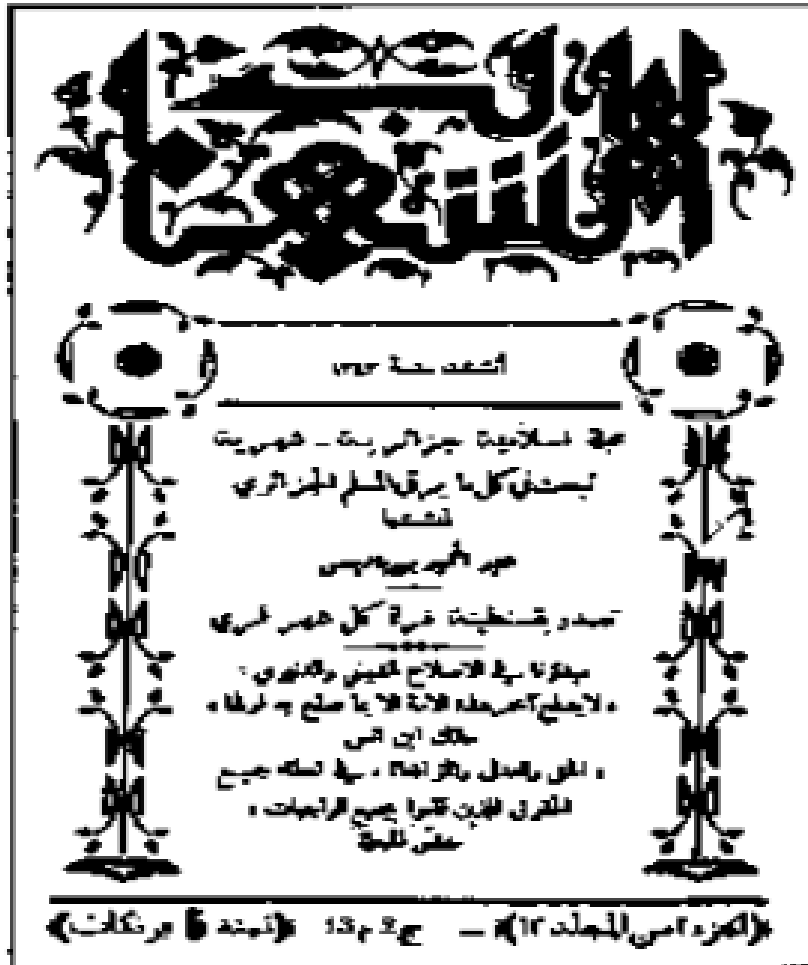 الشهاب
أنشئت سنة ١٣٤٣
مجلة إسلامية جزائرية - شهرية
تبحث في كل ما يرقي المسلم الجزائري
منشئها
عبد الحميد بن باديس
تصدر بقسنطينة غرة كل شهر قمري
مبدؤنا في الاصلاح الديني والدنيوي :
« لا يصلح آخر هذه الامة الا بما صلح به أولها »
مالك ابن انس
« الحق والعدل والمؤاخاة ، في اعطاء جميع
الحقوق للذين قاموا بجميع الواجبات »
﴿الجزء ٢ من المجلد ١٣﴾ — ج 2 م 13 ﴿ثمنه 5 فرنكات﴾